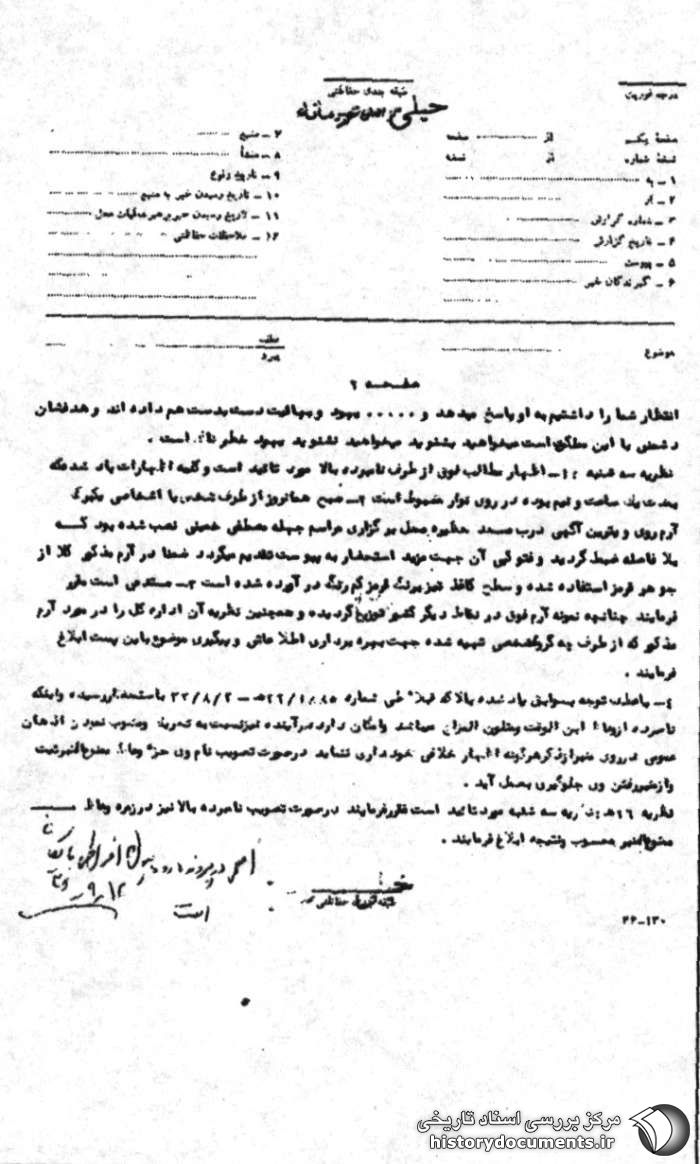 طبقه بندی حفاظتی
درجه فوریت
خیلی محرمانه
صفحه یکم از صفحه
نسخه شماره از نسخه
۱ - به
۲ - از
۳ - شماره گزارش
۴ - تاریخ گزارش
۵ - پیوست
۶ - گیرندگان خبر
۷ - منبع
۸ - منشأ
۹ - تاریخ وقوع
۱۰ - تاریخ رسیدن خبر به منبع
۱۱ - تاریخ رسیدن خبر به رهبر عملیات محل
۱۲ - ملاحظات حفاظتی
موضوع
صفحه ۲
انتظار شما را داشتیم به او پاسخ میدهد و ..... یهود و بهائیت دست بدست هم داده اند و هدفشان
دشمنی با این مملکت است میخواهید بشنوید میخواهید نشنوید یهود خطرناک است .
نظریه سه شنبه : ۱- اظهار مطالب فوق از طرف نامبرده بالا مورد تائید است و کلیه اظهارات یاد شده که
بمدت یک ساعت و نیم بوده در روی نوار مضبوط است ۲- صبح همانروز از طرف شخص یا اشخاصی یکبرگ
آرم روی ویترین آگهی درب مسجد حظیره محل برگزاری مراسم چهله مصطفی خمینی نصب شده بود کـــه
بلا فاصله ضبط گردید و فتوکپی آن جهت مزید استحضار به پیوست تقدیم میگردد ضمنا در آرم مذکور کلا از
جوهر قرمز استفاده شده و سطح کاغذ نیز برنگ قرمز کم رنگ در آورده شده است ۳- مستدعی است مقرر
فرمایند چنانچه نمونه آرم فوق در نقاط دیگر کشور توزیع گردیده و همچنین نظریه آن اداره کل را در مورد آرم
مذکور که از طرف چه گروه شخصی تهیه شده جهت بهره برداری اطلاعاتی و پیگیری موضوع باین بست ابلاغ
فرمایند .
۴- باعطف توجه بسوابق یاد شده بالا که قبلا طی شماره
نامبرده ازوعاظ ابن الوقت ومتلون المزاج میباشد وامکان دارد درآینده نیزنسبت به تحریک ومشوب نمودن اذهان
عمومی درروی منبرازذکرهرگونه اظهار خلافی خودداری ننماید درصورت تصویب نام وی جزء وعاظ ممنوع المنبر ثبت
وازمنبررفتن وی جلوگیری بعمل آید .
نظریه ۱۶ هـ : نظریه سه شنبه مورد تائید است مقررفرمایند درصورت تصویب نامبرده بالا نیز درزمره وعاظ
ممنوع المنبر محسوب ونتیجه ابلاغ فرمایند .
اصل در پرونده
است
طبقه بندی حفاظتی
۲۶-۱۳۰
مرکز بررسی اسناد تاریخی
historydocuments.ir